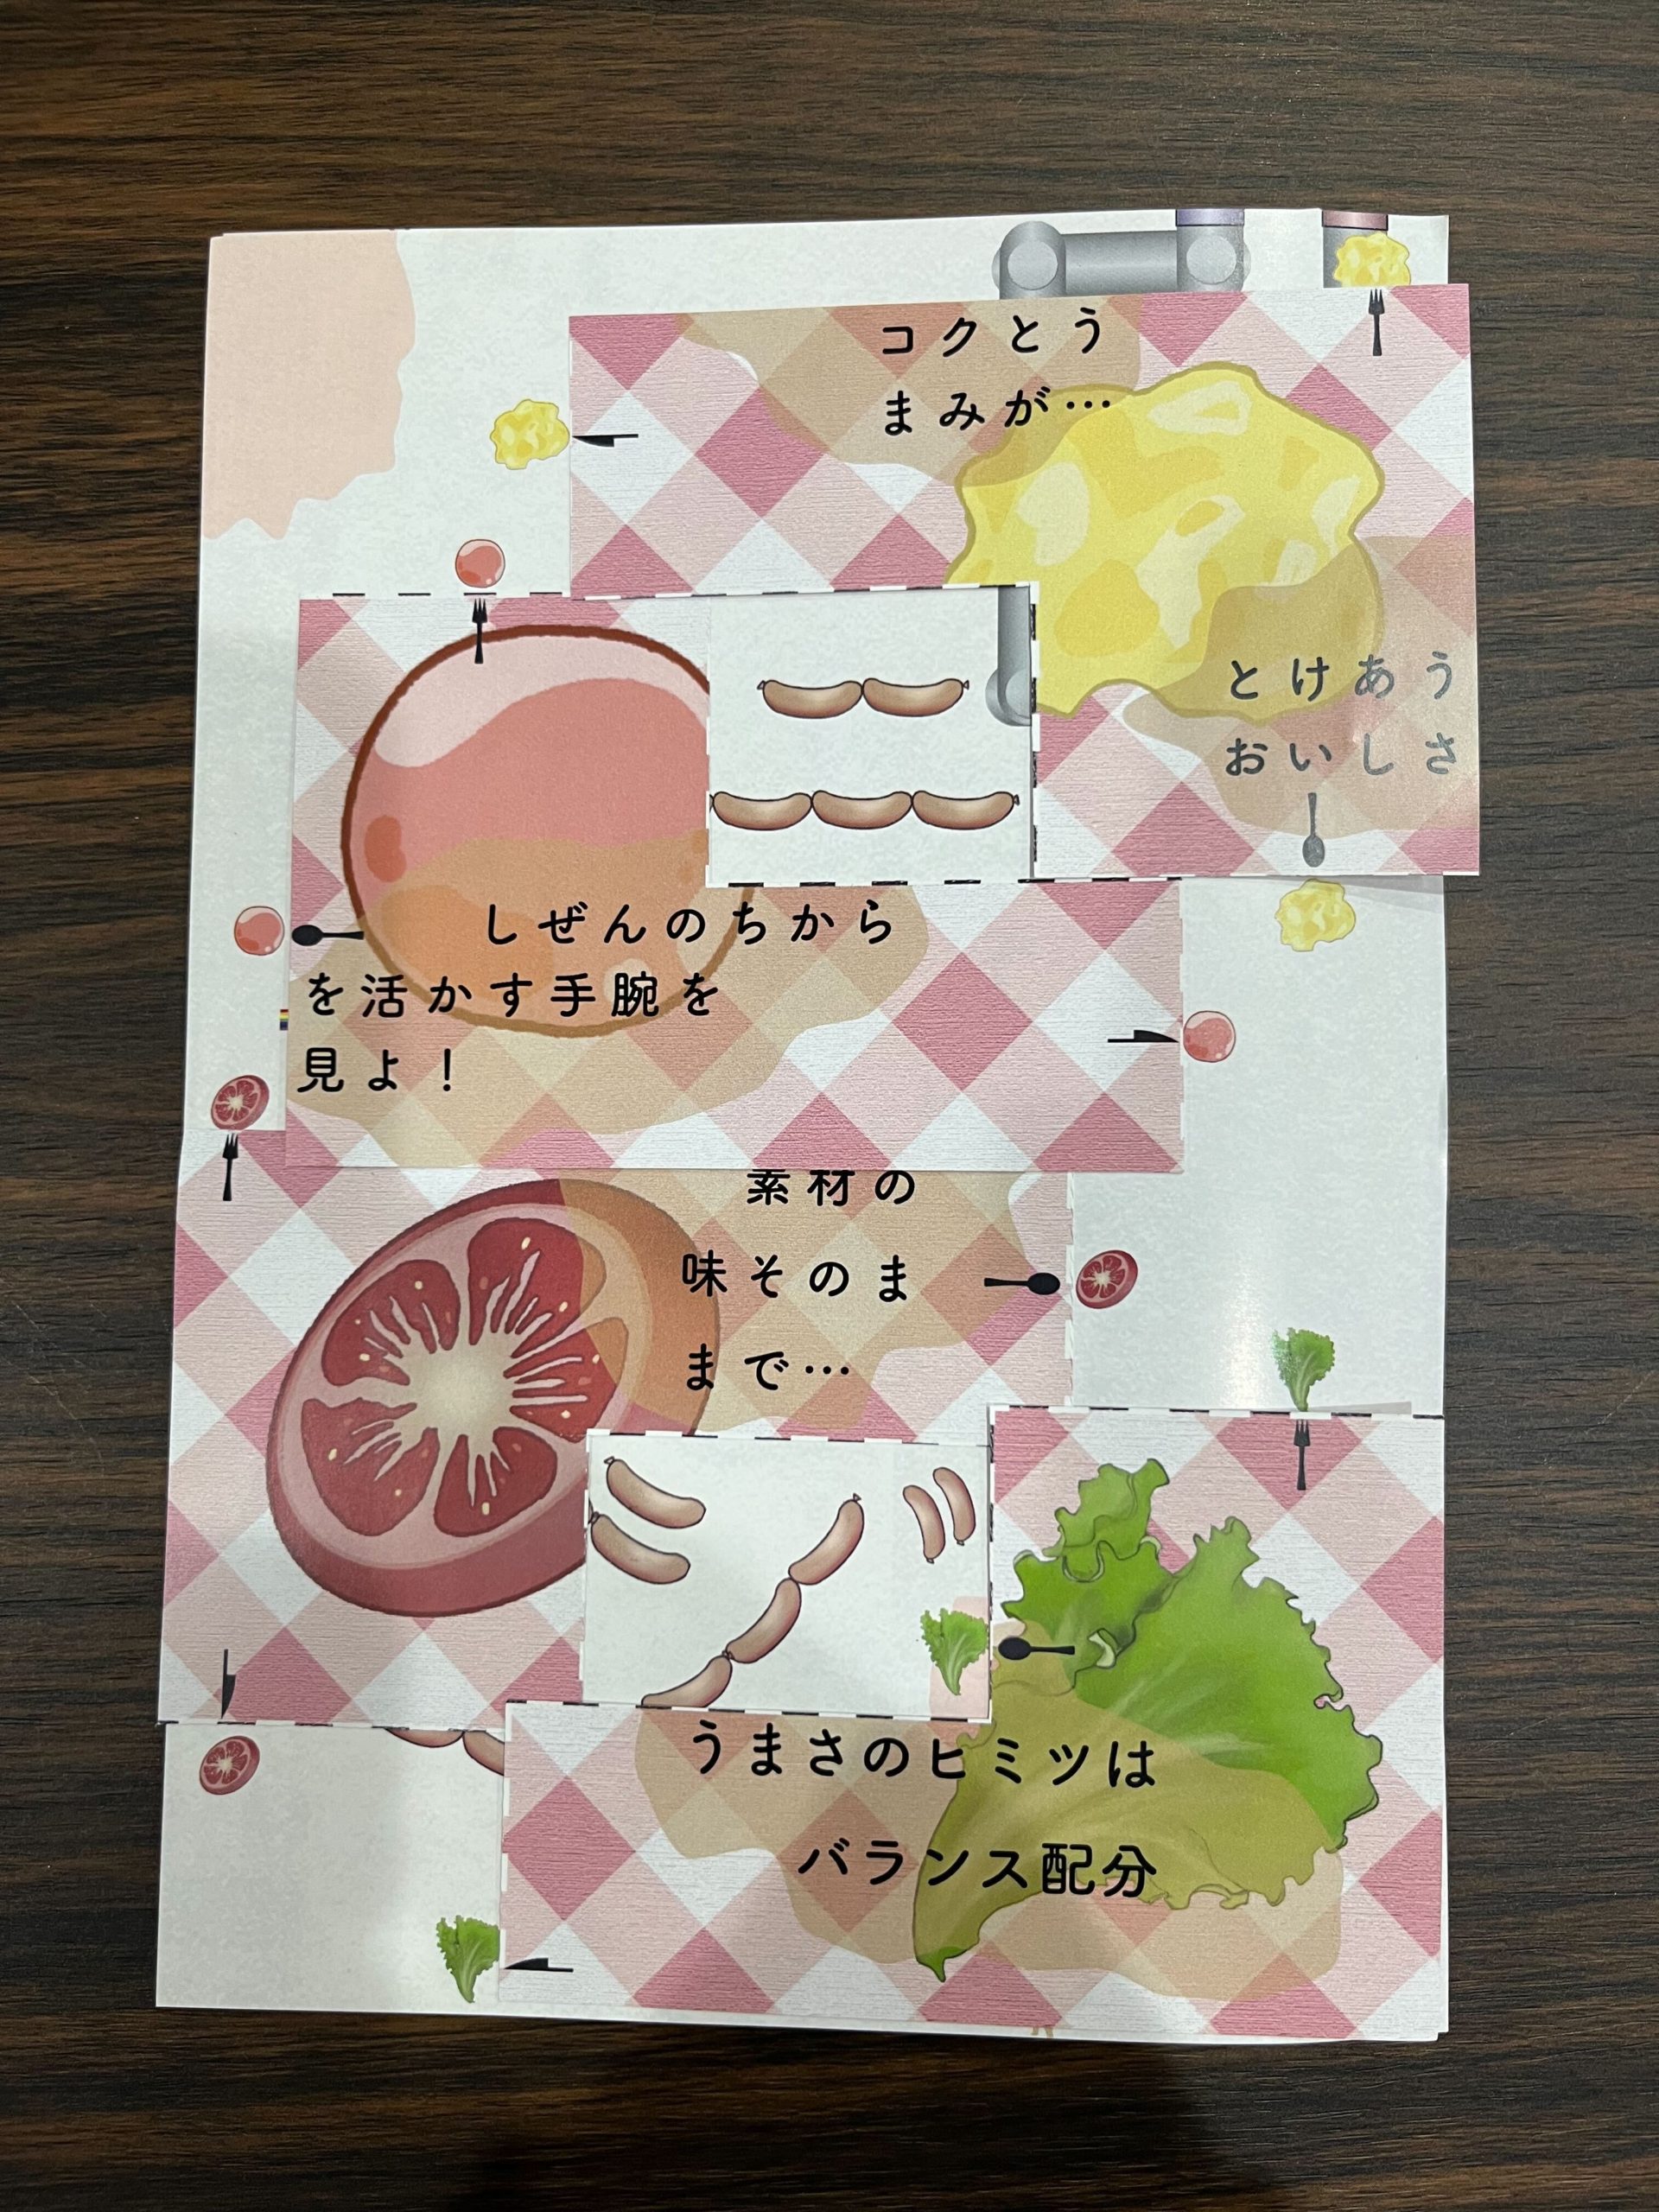 コクとう
まみが…
とけあう
おいしさ
しぜんのちから
を活かす手腕を
見よ！
素材の
味そのま
まで…
うまさのヒミツは
バランス配分